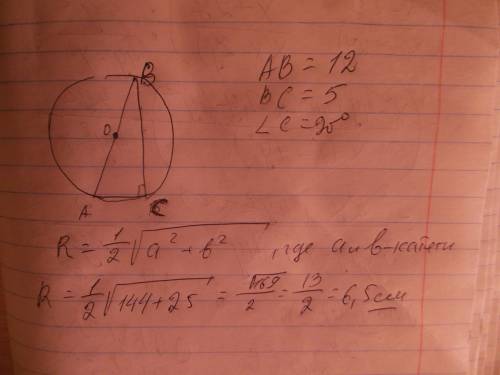 B
AB = 12
BC = 5
∠C = 90°
O
A C
R = 1/2 √a² + b² , где a и b - катеты
R = 1/2 √144 + 25 = √169/2 = 13/2 = 6,5 см